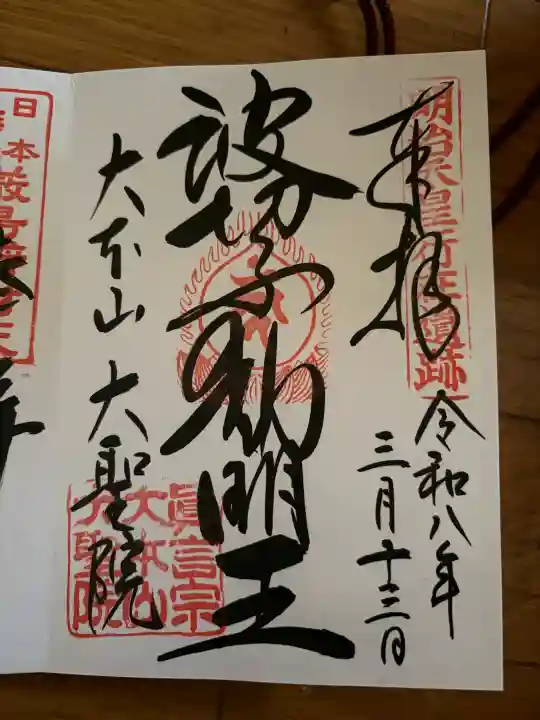 奉拝
明治天皇行在遺跡
令和八年
三月十三日
波切不動明王
大本山 大聖院
眞言宗
大本山
大聖院
日本